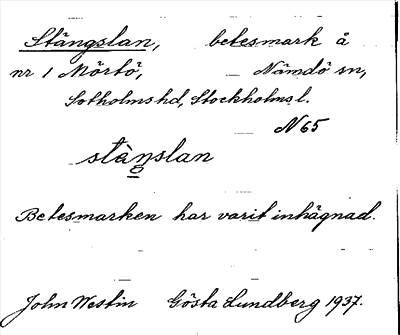 Stängslan, betesmark å
nr 1 Mörtö, Nämdö sn,
Sotholms hd, Stockholms l.
N 65
stàn̥slan
Betesmarken har varit inhägnad.
John Westin Gösta Lundberg 1937.